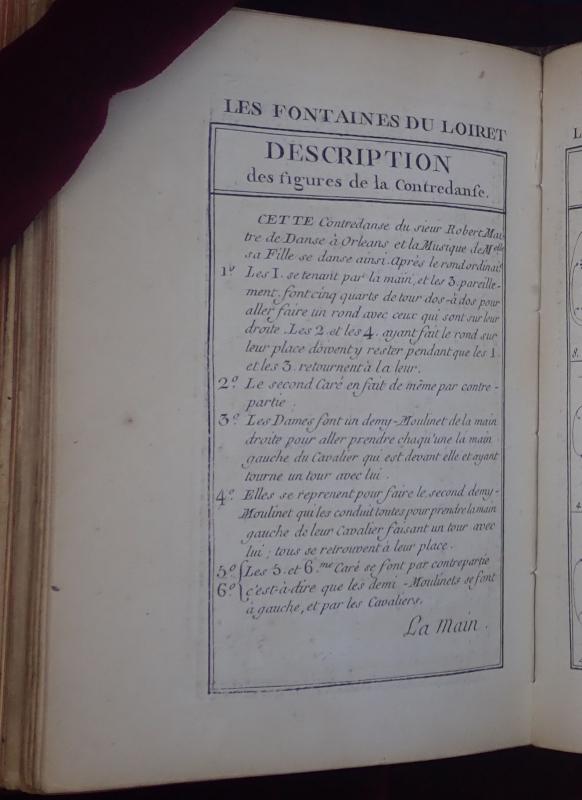 LES FONTAINES DU LOIRET
DESCRIPTION
des figures de la Contredanse.
CETTE Contredanse du sieur Robert Mai-
tre de Danse à Orleans et la Musique de Melle
sa Fille se danse ainsi. Après le rond ordinaire
1º. Les 1. se tenant par la main, et les 3. pareille-
ment, font cinq quarts de tour dos-à dos pour
aller faire un rond avec ceux qui sont sur leur
droite. Les 2. et les 4. ayant fait le rond sur
leur place doivent y rester pendant que les 1.
et les 3. retournent à la leur.
2º. Le second Caré en fait de même par contre-
partie.
3º. Les Dames font un demy-Moulinet de la main
droite pour aller prendre chaqu'une la main
gauche du Cavalier qui est devant elle et ayant
tourne un tour avec lui.
4º. Elles se reprenent pour faire le second demy-
Moulinet qui les conduit toutes pour prendre la main
gauche de leur Cavalier faisant un tour avec
lui; tous se retrouvent à leur place.
5º. { Les 5. et 6.me Caré se font par contrepartie
6º. { c'est-à-dire que les demi-Moulinets se font
à gauche, et par les Cavaliers.
La Main.
L
8.
4.